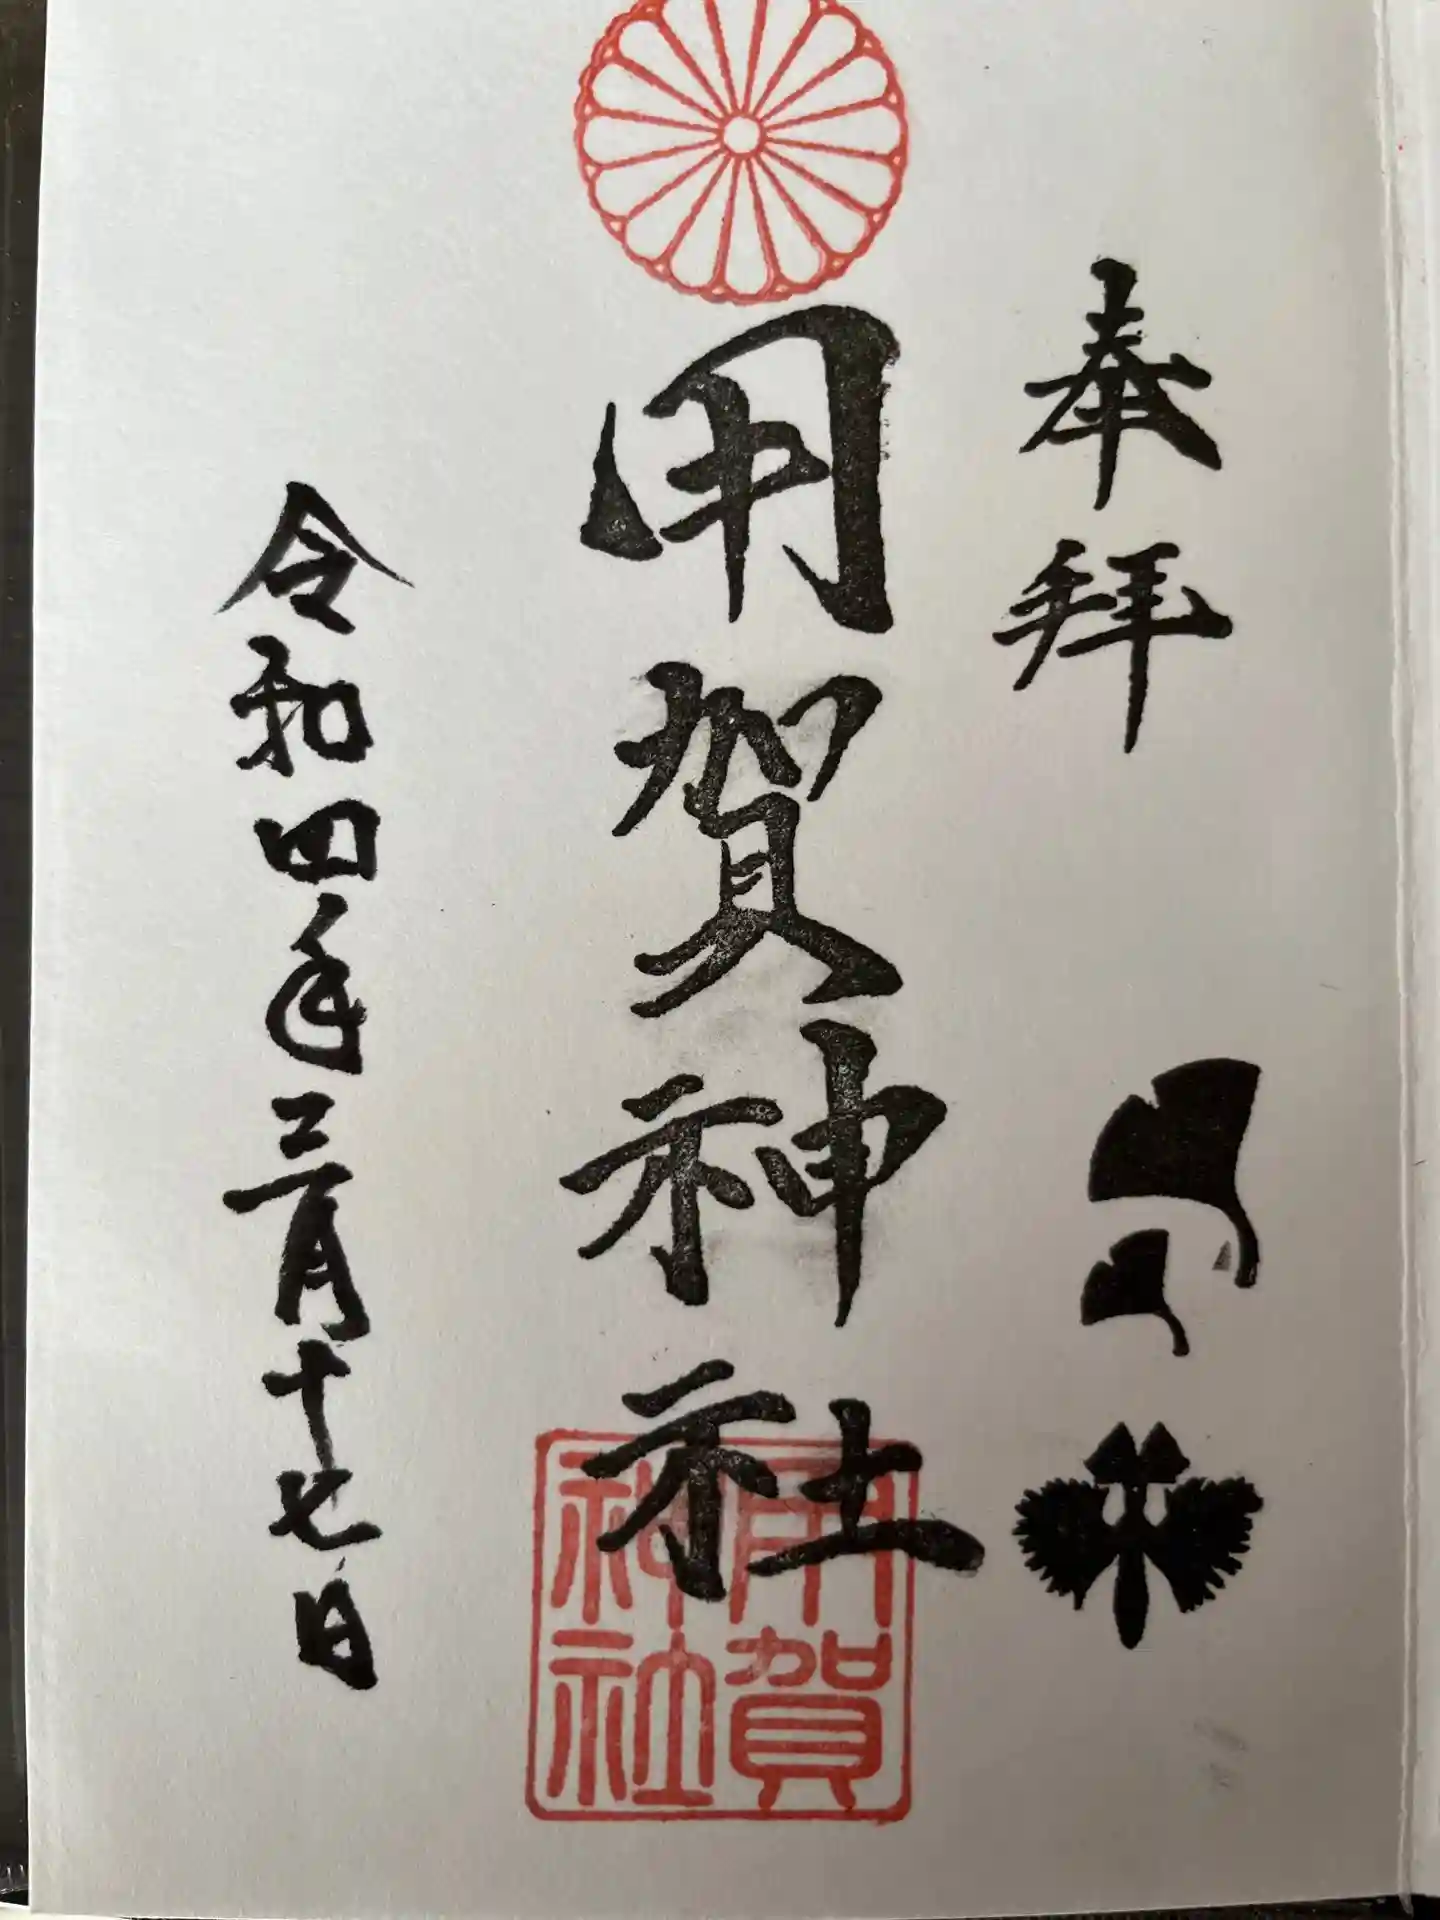 奉拝
用賀神社
用賀
神社
令和四年三月十七日